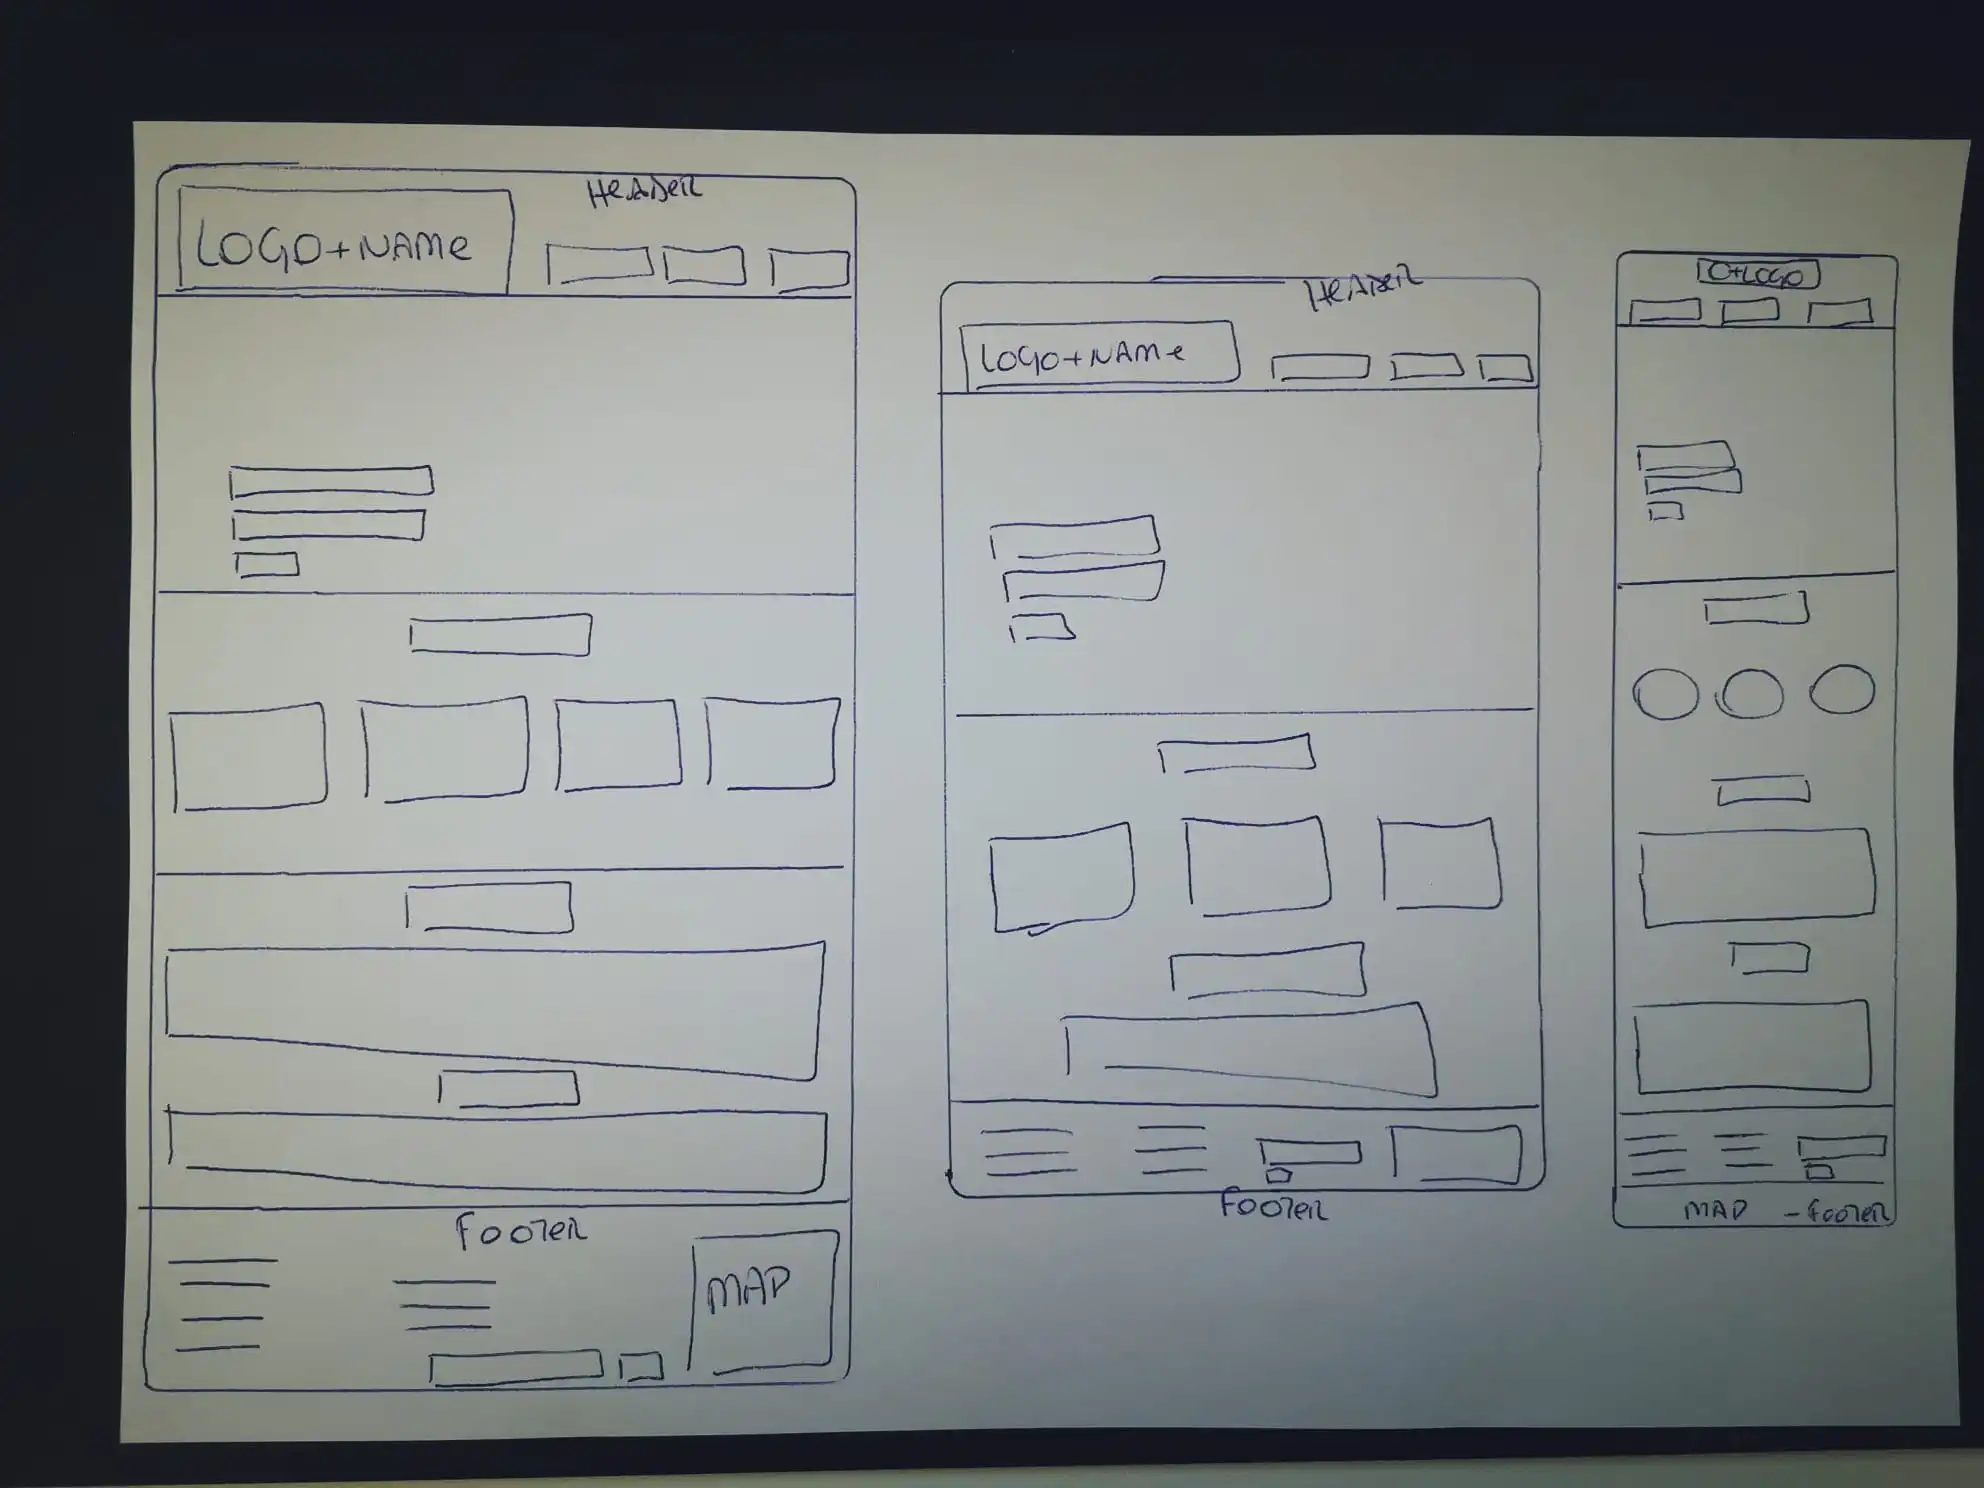 HEADER
LOGO+NAME
FOOTER
MAP
HEADER
LOGO+NAME
FOOTER
O+LOGO
MAP - FOOTER